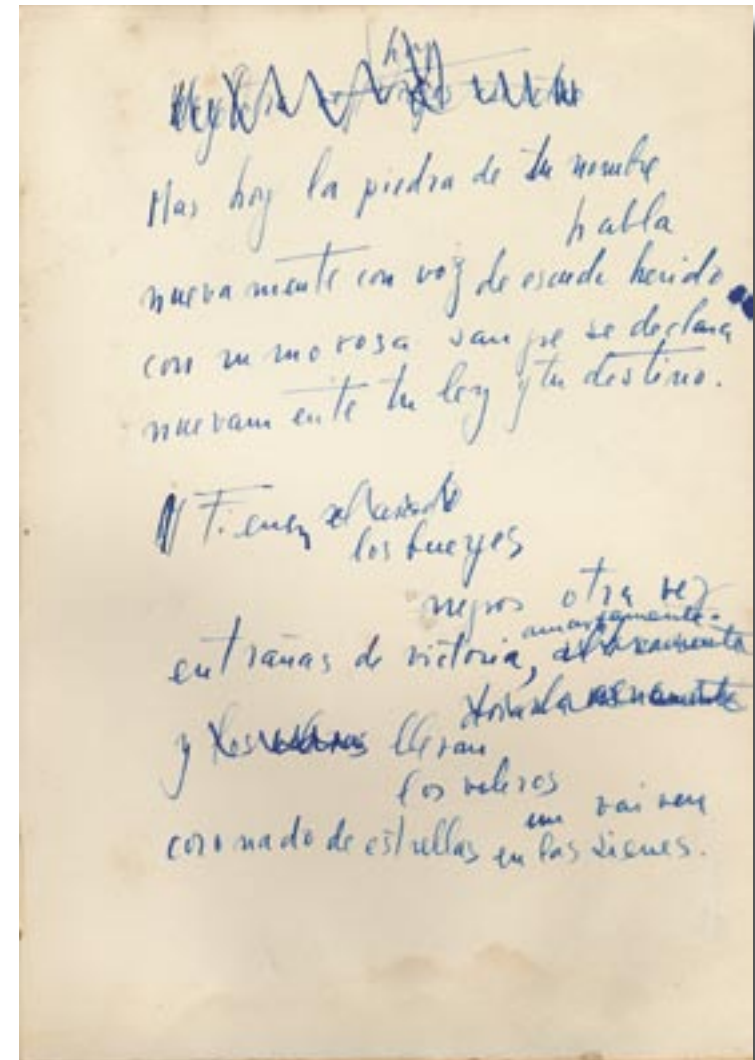 hoy
Mas hoy la piedra de tu nombre
habla
nuevamente con voz de escudo herido
con rumorosa sangre se declara
nuevamente tu ley y tu destino.
Tienen
los bueyes
negros otra vez
amargamente.
entrañas de victoria,
y llevan
los veleros
un vaivén
coronado de estrellas en las sienes.